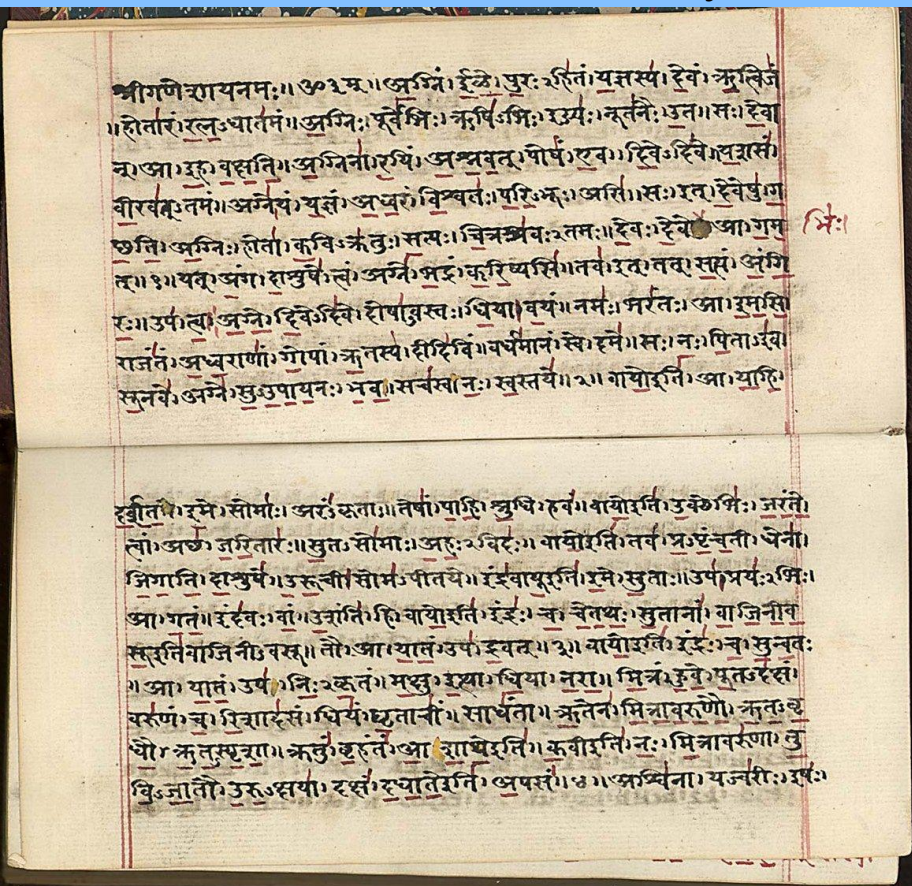 श्रीगणेशायनमः॥ॐ३म्॥अ॒ग्निं।ई॒ळे॒।पु॒रःऽहि॑तं।य॒ज्ञस्य॑।दे॒वं।ऋ॒त्विजं॑
॥होता॑रं।र॒त्न॒ऽधात॑मं॥अ॒ग्निः।पूर्वे॑भिः।ऋषि॑ऽभिः।ईड्यः॑।नूत॑नैः।उ॒त॥सः।दे॒वा
न्।आ।इ॒ह।व॒क्ष॒ति॒॥अ॒ग्निना॑।र॒यिं।अ॒श्न॒व॒त्।पोषं॑।ए॒व।दि॒वेऽदि॑वे॥य॒शसं॑
वी॒रव॑त्ऽतमं॥अग्ने॑।यं।य॒ज्ञं।अ॒ध्व॒रं।वि॒श्वतः॑।प॒रि॒ऽभूः।असि॑॥सः।इत्।दे॒वेषु॑।ग॒
च्छ॒ति॒।अ॒ग्निः।होता॑।क॒विऽक्र॑तुः।स॒त्यः।चि॒त्रश्र॑वःऽतमः॥दे॒वः।दे॒वे।आ।ग॒म॒
भिः॑।
त्॥१॥यत्।अं॒ग।दा॒शुषे॑।त्वं।अग्ने॑।भ॒द्रं।क॒रि॒ष्यसि॑॥तव॑।इत्।तत्।स॒त्यं।अं॒गि॒
रः॒॥उप॑।त्वा॒।अ॒ग्ने॒।दि॒वेऽदि॑वे।दोषा॑ऽवस्तः।धि॒या।व॒यं॥नमः॑।भरं॑तः।आ।इ॒म॒सि॒
राजं॑तं।अ॒ध्व॒राणां॑।गो॒पां।ऋ॒तस्य॑।दीदि॑विं॥वर्ध॑मानं।स्वे।दमे॑॥सः।नः॒।पि॒ताऽइ॑व
सू॒नवे॑।अग्ने॑।सु॒ऽउ॒पा॒य॒नः।भ॒व॒॥सच॑स्व।नः॒।स्व॒स्तये॑॥२॥वायो॒इति॑।आ।या॒हि॒
द॒र्श॒त॒।इ॒मे।सोमाः॑।अरं॑ऽकृताः॥तेषां॑।पा॒हि॒।श्रु॒धि।हवं॑॥वायो॒इति॑।उ॒क्थेभिः॑।ज॒रं॒ते॒
त्वां।अच्छ॑।ज॒रि॒तारः॑॥सु॒तऽसो॑माः।अ॒हः॒ऽविदः॑॥वायो॒इति॑।तव॑।प्र॒ऽपृं॒च॒ती।धेना॑।
जि॒गा॒ति॒।दा॒शुषे॑।उ॒रू॒ची।सोम॑ऽपीतये॥इंद्र॑वायू॒इति॑।इ॒मे।सु॒ताः॥उप॑।प्रयः॑ऽभिः।
आ।ग॒तं॒॥इंद॑वः।वां॒।उ॒शंति॑।हि॥वायो॒इति॑।इंद्रः॑।च॒।चे॒त॒थः॒।सु॒तानां॑।वा॒जि॒नी॒व॒
सू॒इति॑वाजिनीऽवसू॥तौ।आ।या॒तं॒।उप॑।द्र॒वत्॥३॥वायो॒इति॑।इंद्रः॑।च॒।सु॒न्व॒तः
॥आ।या॒तं॒।उप॑।निः॒ऽकृ॒तं॥म॒क्षु।इ॒त्था।धि॒या।न॒रा॒॥मि॒त्रं।हु॒वे॒।पू॒तऽद॑क्षं।
वरु॑णं।च॒।रि॒शाद॑सं।धियं॑।घृ॒ताचीं॑।साधं॑ता॥ऋ॒तेन॑।मि॒त्रा॒व॒रु॒णौ॒।ऋ॒त॒ऽवृ॒
धौ॒।ऋ॒त॒ऽस्पृ॒शा॒॥क्रतुं॑।बृ॒हंतं॑।आ॒शा॒थे॒इति॑।क॒वीइति॑।नः॒।मि॒त्रावरु॑णा।तु॒
वि॒ऽजा॒तौ।उ॒रु॒ऽक्षया॑।दक्षं॑।द॒धा॒ते॒इति॑।अ॒पसं॑॥४॥अश्वि॑ना।यज्व॑रीः।इषः॑।